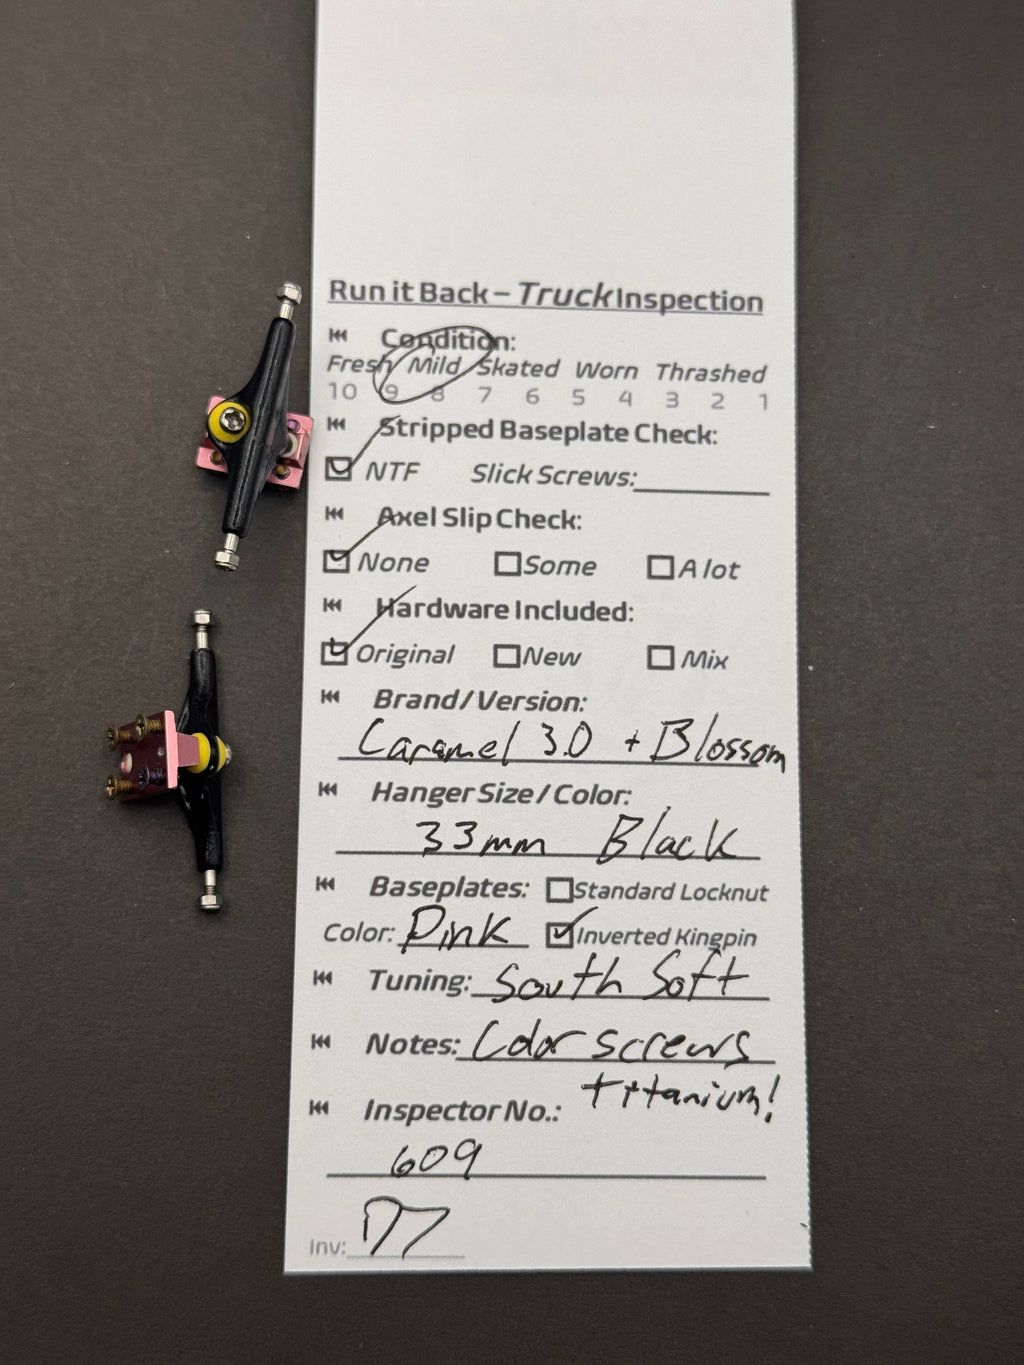 Run it Back – Truck Inspection
Condition:
Fresh Mild Skated Worn Thrashed
10 9 8 7 6 5 4 3 2 1
Stripped Baseplate Check:
NTF Slick Screws:
Axel Slip Check:
None Some A lot
Hardware Included:
Original New Mix
Brand/Version:
Caramel 3.0 + Blossom
Hanger Size/Color:
33mm Black
Baseplates: Standard Locknut
Color: Pink Inverted Kingpin
Tuning: South Soft
Notes: Color screws
titanium!
Inspector No.:
609
Inv: